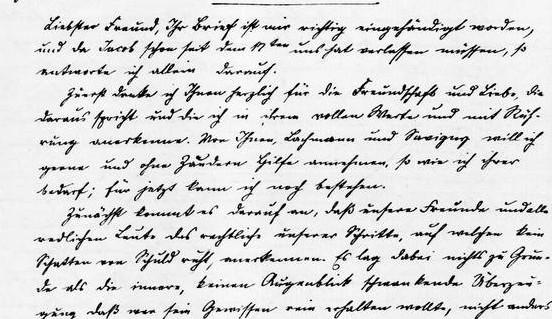 Liebster Freund, Ihr Brief ist mir richtig eingehändigt worden,
und da Jacob schon seit dem 17ten uns hat verlassen müssen, so
antworte ich allein darauf.
Zuerst danke ich Ihnen herzlich für die Freundschaft und Liebe, die
daraus spricht und die ich in ihrem vollen Werte und mit Rüh-
rung anerkenne. Von Ihnen, Lachmann und Savigny will ich
gerne und ohne Zaudern Hilfe annehmen, so wie ich ihrer
bedarf; für jetzt kann ich noch bestehen.
Zunächst kommt es darauf an, daß unsere Freunde und alle
redlichen Leute das rechtliche unserer Schritte, auf welchen kein
Schatten von Schuld ruht, anerkennen. Es lag dabei nichts zu Grun-
de als die innere, keinen Augenblick schwankende Überzeu-
gung daß wer sein Gewissen rein erhalten wollte, nicht anders